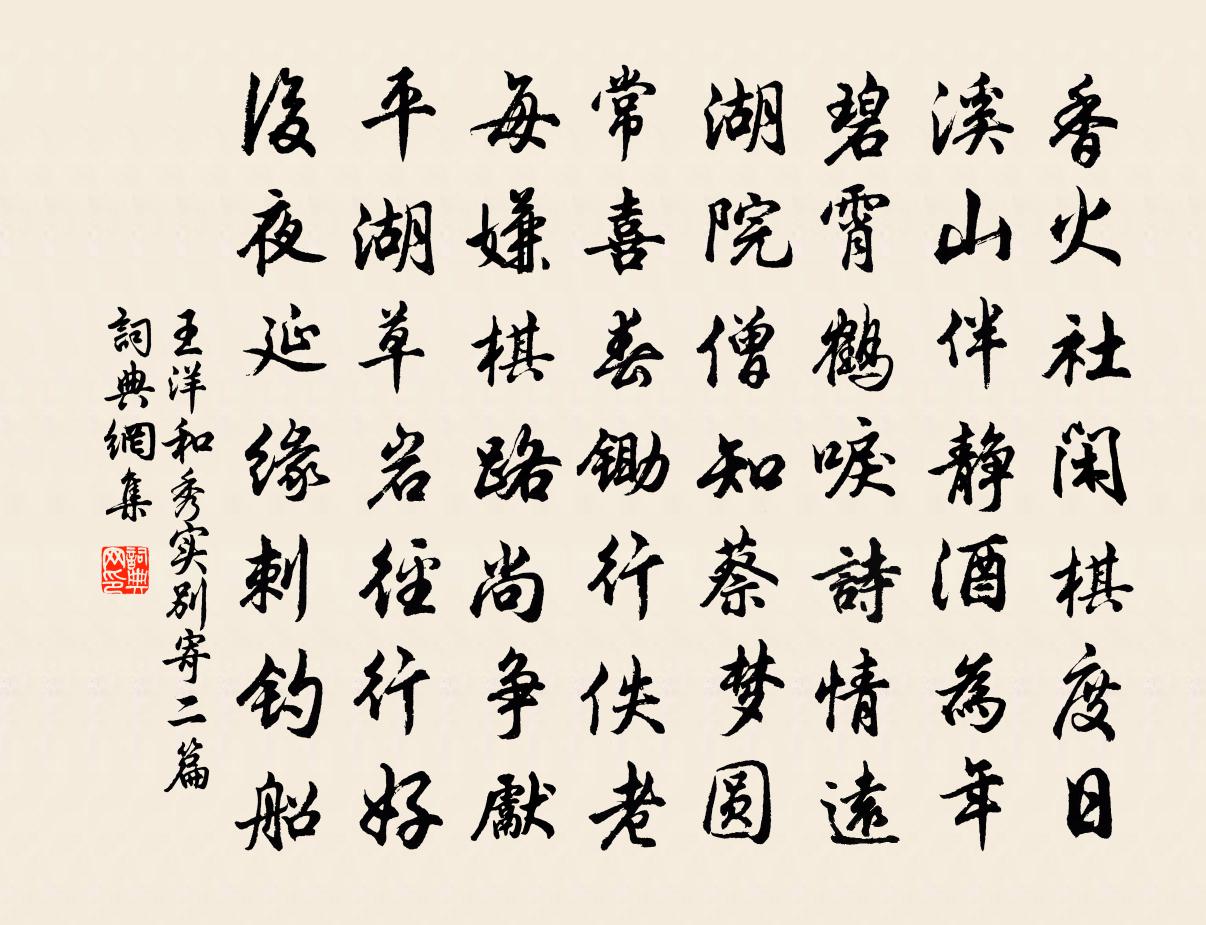 香火社闲棋度日
溪山伴静酒為年
碧霄鹤唳詩情遠
湖院僧知蔡梦圆
常喜春锄行佚老
每嫌棋路尚争獻
平湖草岩徑行好
後夜延缘刺钓船
王洋和秀实别寄二篇
詞典網集
詞典网印